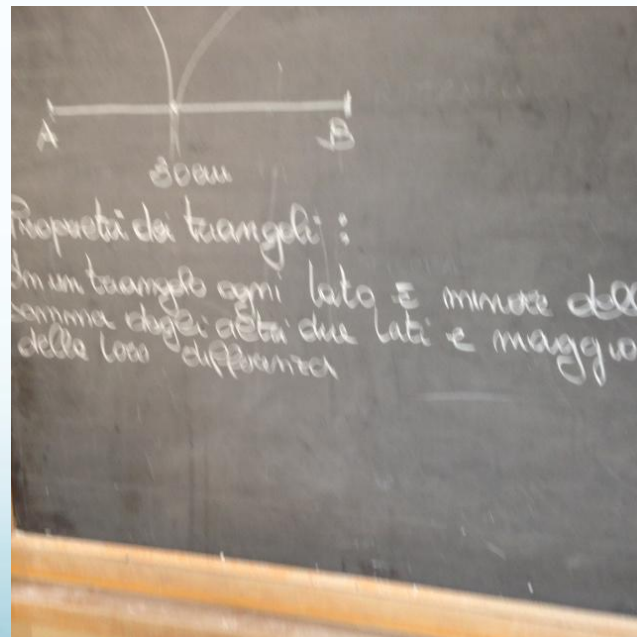 A B
30cm
Proprietà dei triangoli:
In un triangolo ogni lato è minore dell
somma degli altri due lati e maggio
della loro differenza